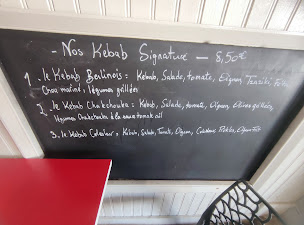 - Nos Kebab Signature — 8,50€
1. le Kebab Berlinois : Kebab, Salade, tomate, Oignon
Chou mariné, légumes grillés
2. le Kebab Chakchouka : Kebab, Salade, tomate, Oignon
légumes Chakchouka à la sauce tomate
3. le Kebab : Kebab, Salade, Tomate, Oignon,